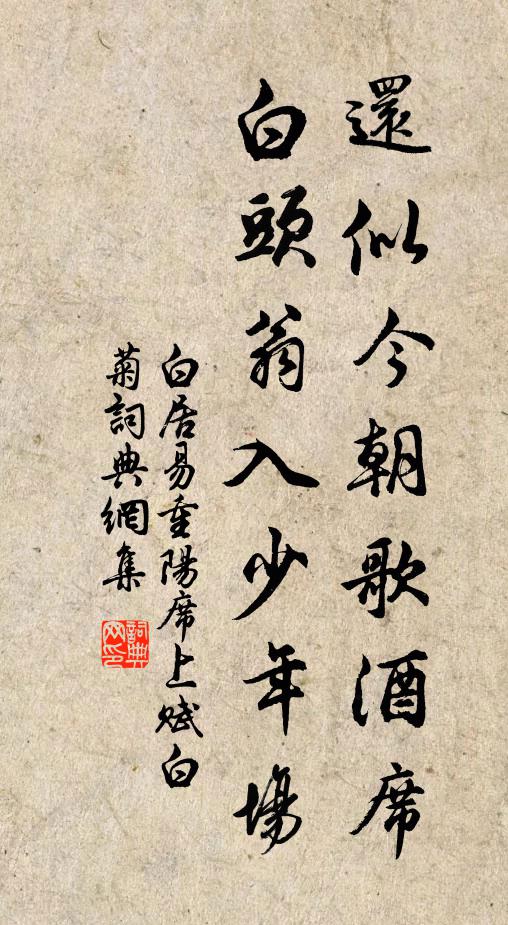 還似今朝歌酒席
白頭翁入少年場
白居易重陽席上賦白
菊詞典網集
詞典
网印